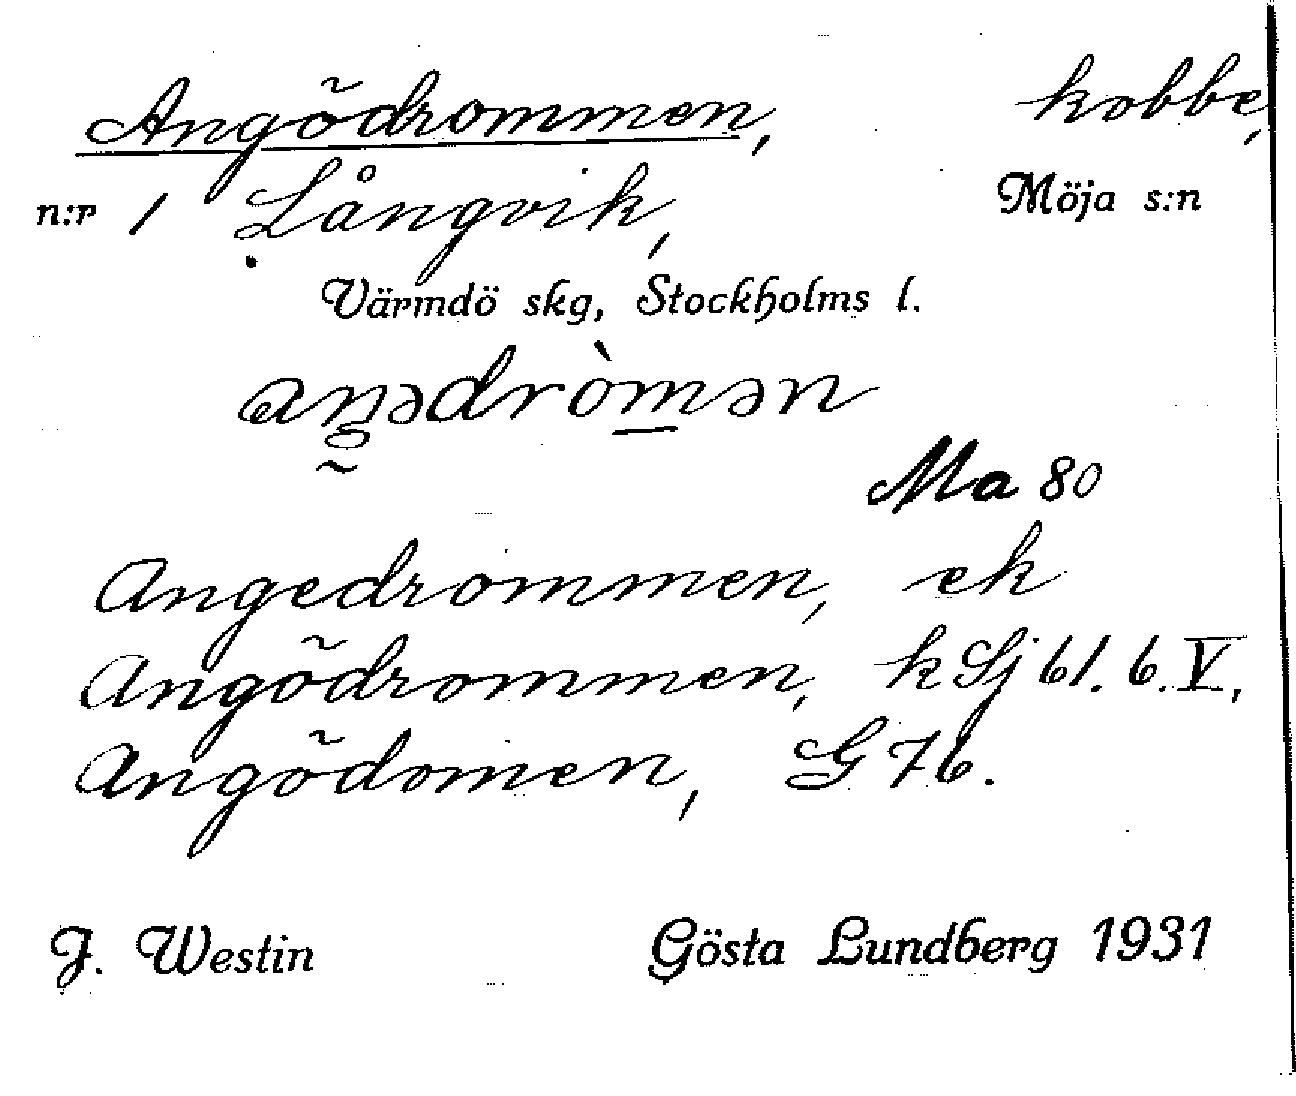 Angödrommen, kobbe,
n:r 1 Långvik, Möja s:n
Värmdö skg, Stockholms l.
aŋədròmən
Ma 80
Angedrommen, ek
Angödrommen, k Sj 61. 6. V,
Angödomen, G 76.
J. Westin Gösta Lundberg 1931